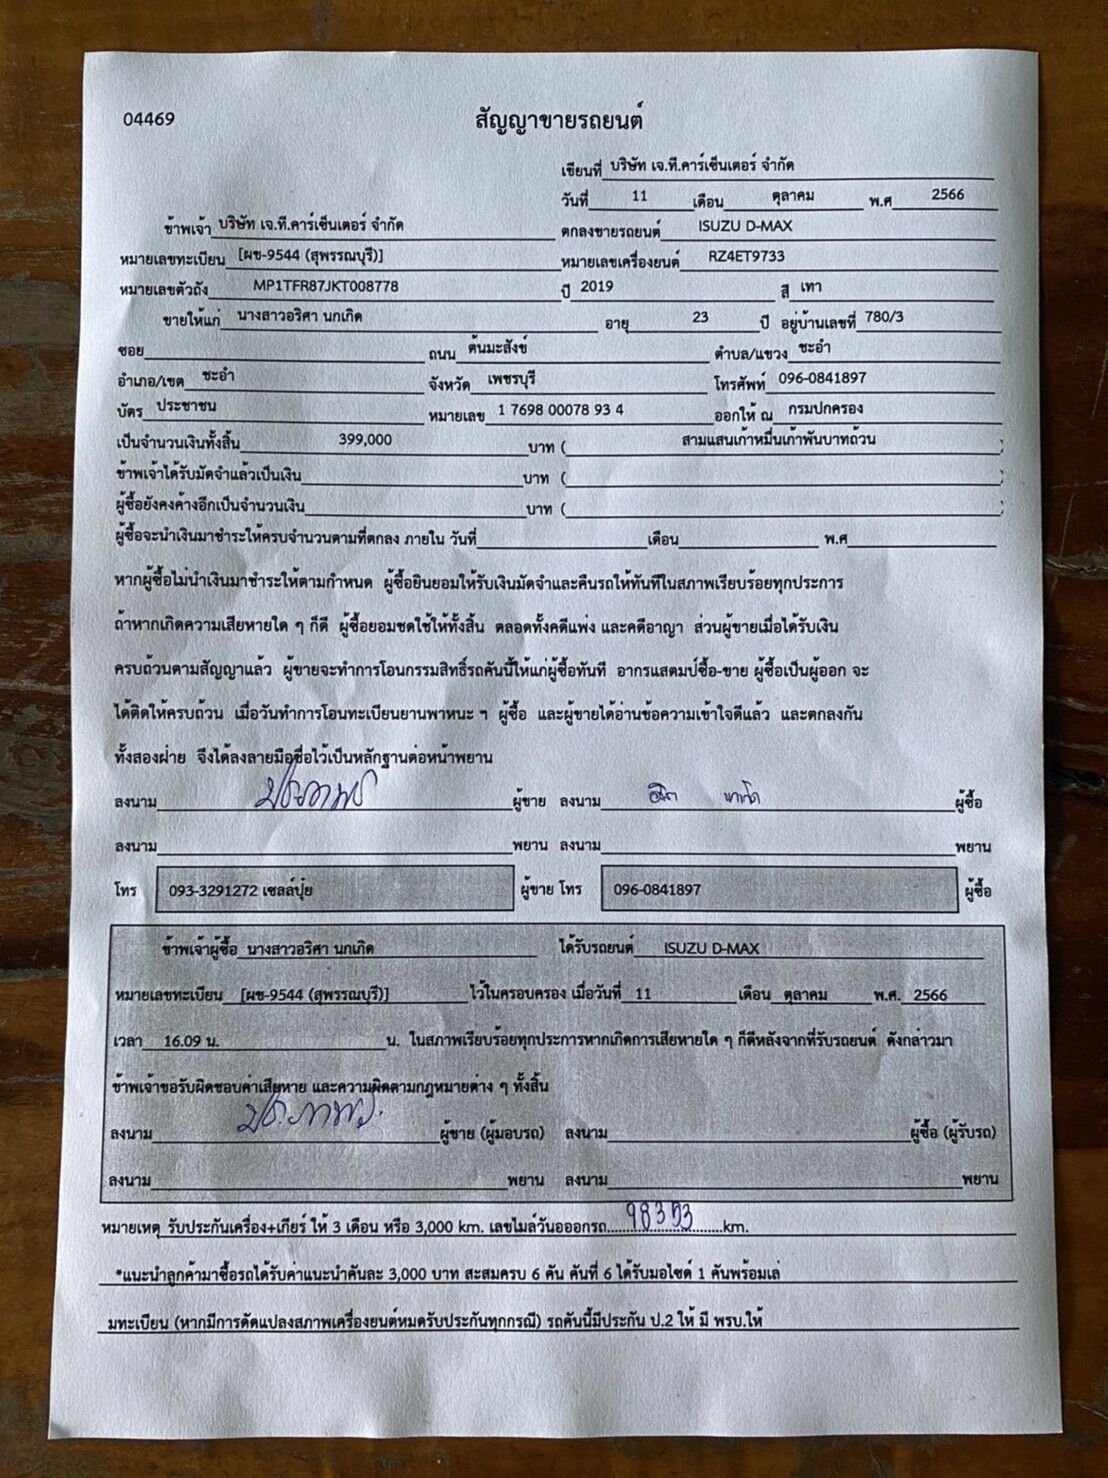 04469
สัญญาขายรถยนต์
เขียนที่ บริษัท เจ.ที.คาร์เซ็นเตอร์ จำกัด
วันที่ 11 เดือน ตุลาคม พ.ศ 2566
ข้าพเจ้า บริษัท เจ.ที.คาร์เซ็นเตอร์ จำกัด ตกลงขายรถยนต์ ISUZU D-MAX
หมายเลขทะเบียน [ผข-9544 (สุพรรณบุรี)] หมายเลขเครื่องยนต์ RZ4ET9733
หมายเลขตัวถัง MP1TFR87JKT008778 ปี 2019 สี เทา
ขายให้แก่ นางสาวอริศา นกเกิด อายุ 23 ปี อยู่บ้านเลขที่ 780/3
ซอย ถนน ต้นมะสังข์ ตำบล/แขวง ชะอำ
อำเภอ/เขต ชะอำ จังหวัด เพชรบุรี โทรศัพท์ 096-0841897
บัตร ประชาชน หมายเลข 1 7698 00078 93 4 ออกให้ ณ กรมปกครอง
เป็นจำนวนเงินทั้งสิ้น 399,000 บาท ( สามแสนเก้าหมื่นเก้าพันบาทถ้วน )
ข้าพเจ้าได้รับมัดจำแล้วเป็นเงิน บาท ( )
ผู้ซื้อยังคงค้างอีกเป็นจำนวนเงิน บาท ( )
ผู้ซื้อจะนำเงินมาชำระให้ครบจำนวนตามที่ตกลง ภายใน วันที่ เดือน พ.ศ
หากผู้ซื้อไม่นำเงินมาชำระให้ตามกำหนด ผู้ซื้อยินยอมให้รับเงินมัดจำและคืนรถให้ทันทีในสภาพเรียบร้อยทุกประการ
ถ้าหากเกิดความเสียหายใด ๆ ก็ดี ผู้ซื้อยอมชดใช้ให้ทั้งสิ้น ตลอดทั้งคดีแพ่ง และคดีอาญา ส่วนผู้ขายเมื่อได้รับเงิน
ครบถ้วนตามสัญญาแล้ว ผู้ขายจะทำการโอนกรรมสิทธิ์รถคันนี้ให้แก่ผู้ซื้อทันที อากรแสตมป์ซื้อ-ขาย ผู้ซื้อเป็นผู้ออก จะ
ได้ติดให้ครบถ้วน เมื่อวันทำการโอนทะเบียนยานพาหนะ ฯ ผู้ซื้อ และผู้ขายได้อ่านข้อความเข้าใจดีแล้ว และตกลงกัน
ทั้งสองฝ่าย จึงได้ลงลายมือชื่อไว้เป็นหลักฐานต่อหน้าพยาน
ลงนาม ผู้ขาย ลงนาม ผู้ซื้อ
ลงนาม พยาน ลงนาม พยาน
โทร 093-3291272 เซลล์ปุ้ย ผู้ขาย โทร 096-0841897 ผู้ซื้อ
ข้าพเจ้าผู้ซื้อ นางสาวอริศา นกเกิด ได้รับรถยนต์ ISUZU D-MAX
หมายเลขทะเบียน [ผข-9544 (สุพรรณบุรี)] ไว้ในครอบครอง เมื่อวันที่ 11 เดือน ตุลาคม พ.ศ. 2566
เวลา 16.09 น. น. ในสภาพเรียบร้อยทุกประการหากเกิดการเสียหายใด ๆ ก็ดีหลังจากที่รับรถยนต์ ดังกล่าวมา
ข้าพเจ้าขอรับผิดชอบค่าเสียหาย และความผิดตามกฎหมายต่าง ๆ ทั้งสิ้น
ลงนาม ผู้ขาย (ผู้มอบรถ) ลงนาม ผู้ซื้อ (ผู้รับรถ)
ลงนาม พยาน ลงนาม พยาน
หมายเหตุ รับประกันเครื่อง+เกียร์ ให้ 3 เดือน หรือ 3,000 km. เลขไมล์วันออกรถ 98353 km.
*แนะนำลูกค้ามาซื้อรถได้รับค่าแนะนำคันละ 3,000 บาท สะสมครบ 6 คัน คันที่ 6 ได้รับมอไซด์ 1 คันพร้อมเล่
มทะเบียน (หากมีการดัดแปลงสภาพเครื่องยนต์หมดรับประกันทุกกรณี) รถคันนี้มีประกัน ป.2 ให้ มี พรบ.ให้